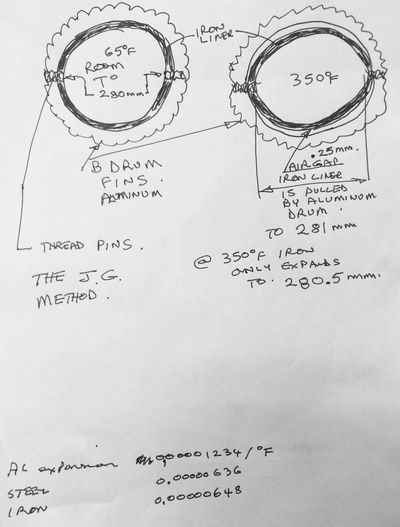 65°F
ROOM
T°
280mm
IRON
LINER
350°F
B DRUM
FINS.
ALUMINUM
.25mm.
AIRGAP
IRON LINER
IS PULLED
BY ALUMINUM
DRUM.
TO 281 mm
THREAD PINS.
THE J.G.
METHOD.
@ 350°F IRON
ONLY EXPANDS
TO. 280.5 mm.
AL expansion 0,00001234/°F
STEEL 0,00000636
IRON 0,00000648